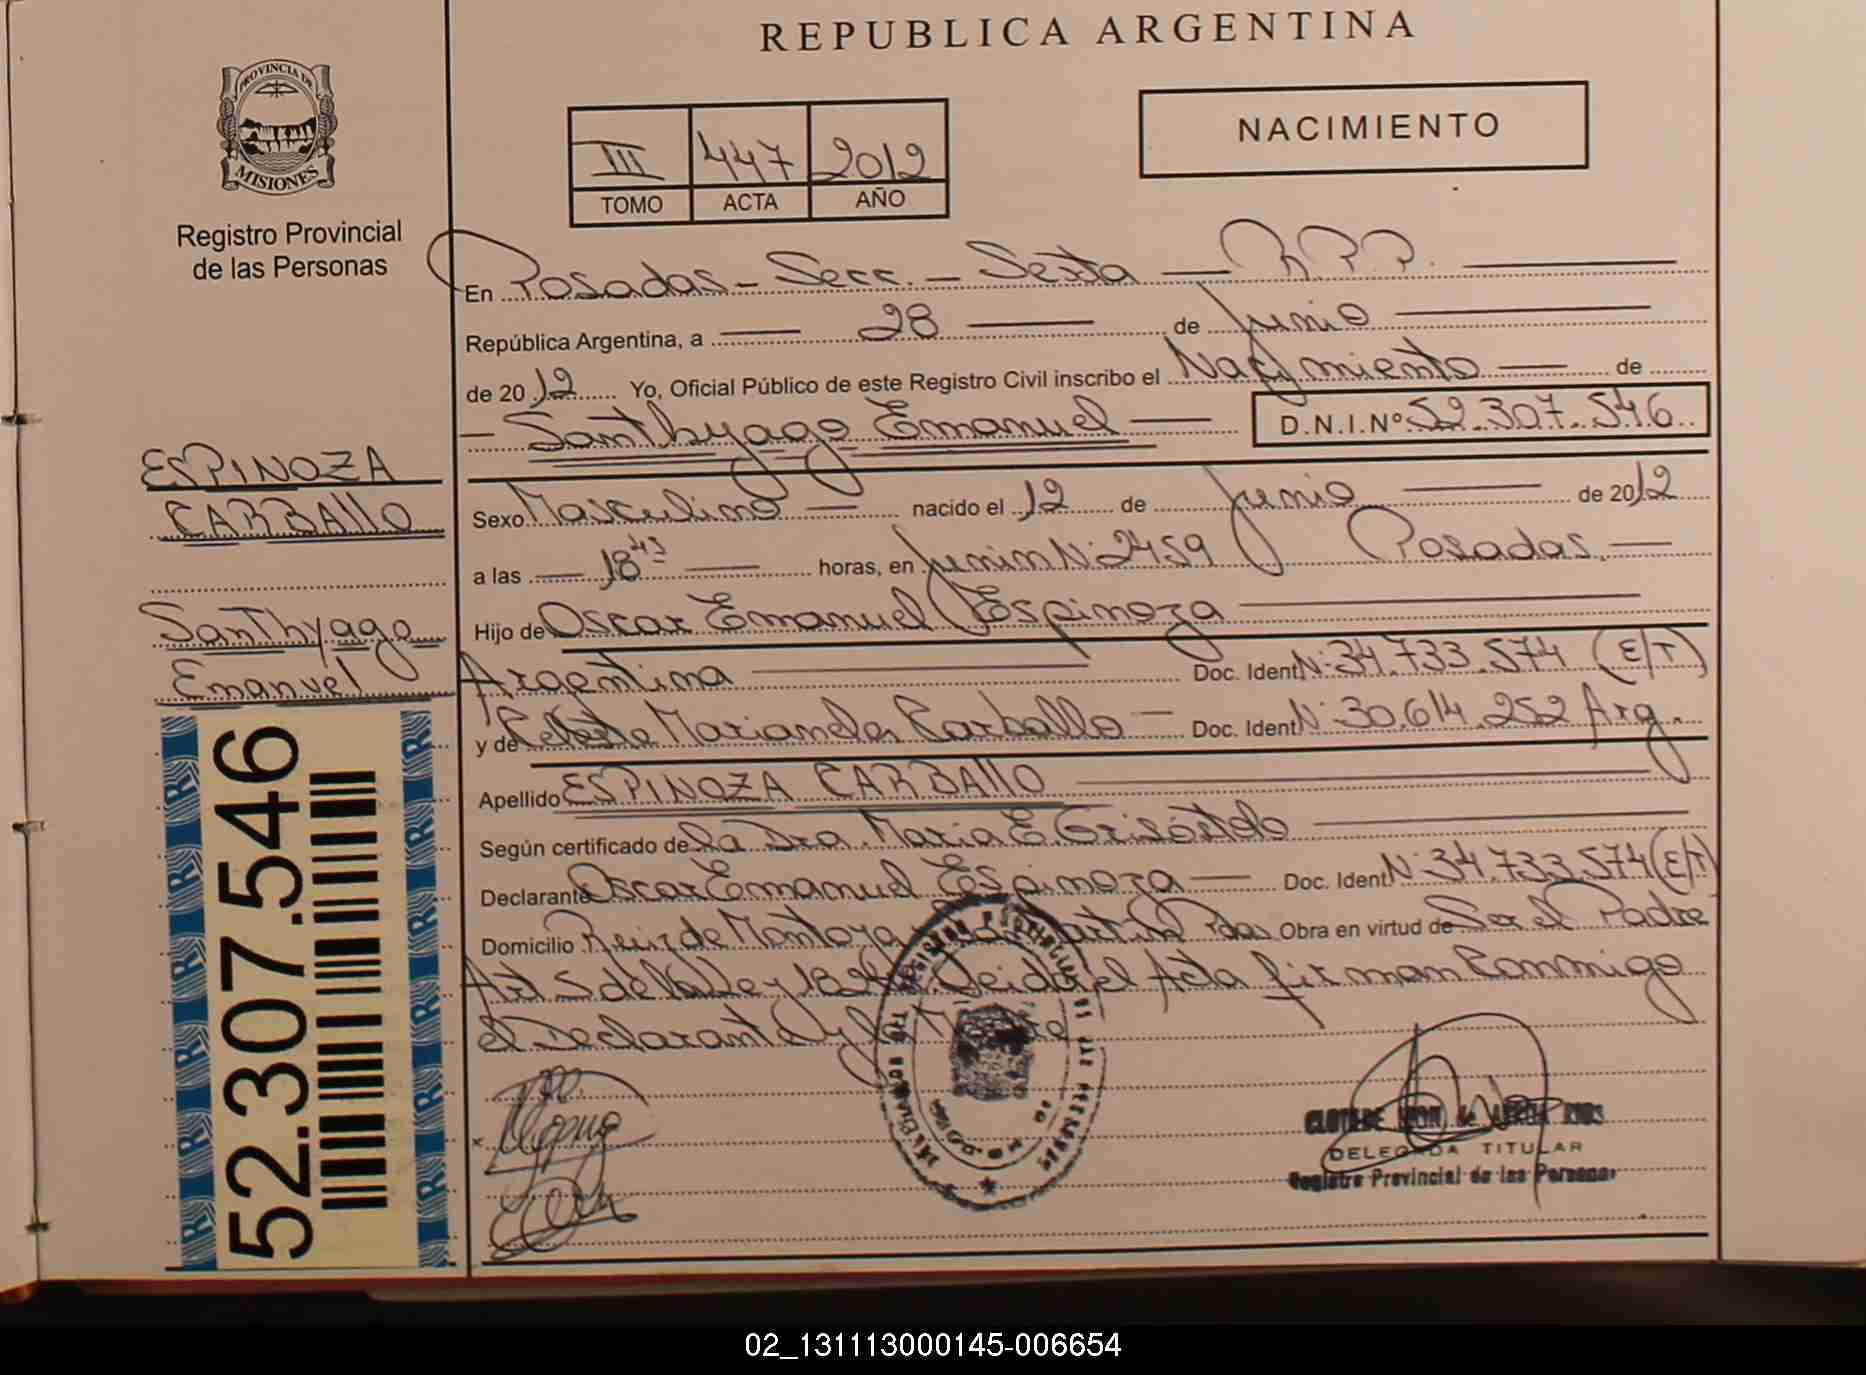 REPUBLICA ARGENTINA
PROVINCIA DE
MISIONES
Registro Provincial
de las Personas
III 447 2012
TOMO ACTA AÑO
NACIMIENTO
En Posadas - Secc. - Sexta — R.P.P. —
República Argentina, a — 28 — de Junio —
de 2012 Yo, Oficial Público de este Registro Civil inscribo el Nacimiento — de
— Santhyago Emanuel — D.N.I.Nº 52.307.546
ESPINOZA
CARBAllO
Santhyago
Emanuel
52.307.546
Sexo Masculino — nacido el 12 de Junio — de 2012
a las — 18 43 — horas, en Junin N: 2459 Posadas. —
Hijo de Oscar Emanuel Espinoza —
Argentina — Doc. Ident N: 34.733.574 (E/T)
y de Celeste Marianela Carballo — Doc. Ident N: 30.614.252 Arg.
Apellido ESPINOZA CARBAllO —
Según certificado de la Dra. Maria E. —
Declarante Oscar Emanuel Espinoza — Doc. Ident N: 34.733.574 (E/T)
Domicilio Ruiz de Montoya Pdas Obra en virtud de Ser el Padre
Leida el Acta firman Conmigo
el Declarante y la Madre
DELEGADA TITULAR
Registro Provincial de las Personas
02_131113000145-006654